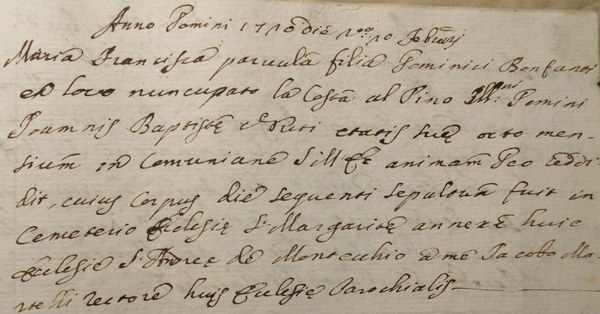 Anno Domini 1710 die 10 Februarij
Maria Francisca parvula filia Dominici Bonfanti
ex loco nuncupato la Costa al Pino Ill:mi Domini
Joannis Baptistę etatis suę octo men-
sium in Comunione S. M. E. animam Deo reddi
dit, cuius Corpus die sequenti sepultum fuit in
Cemeterio Eclesię S. Margaritę annexę huic
Eclesię S. Andreę de Montecchio a me Jacobo Ma-
rtelli rectore huius Eclesię Parochialis